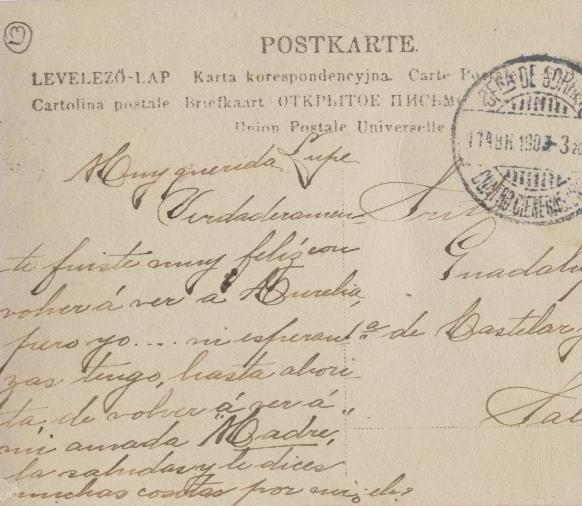 3
POSTKARTE.
LEVELEZŐ-LAP Karta korespondencyjna. Carte
Cartolina postale Briefkaart ОТКРЫТОЕ ПИСЬМО
Union Postale Universelle
Muy querida Lupe
Verdaderamen-
te fuiste muy feliz con
volver á ver á Aurelia,
pero yo.... ni esperan-
zas tengo, hasta ahori-
ta, de volver á ver á
mi amada "Madre",
la saludas y le dices
muchas cositas por mi, eh?
Guadalu
a de Castelar y
Sal